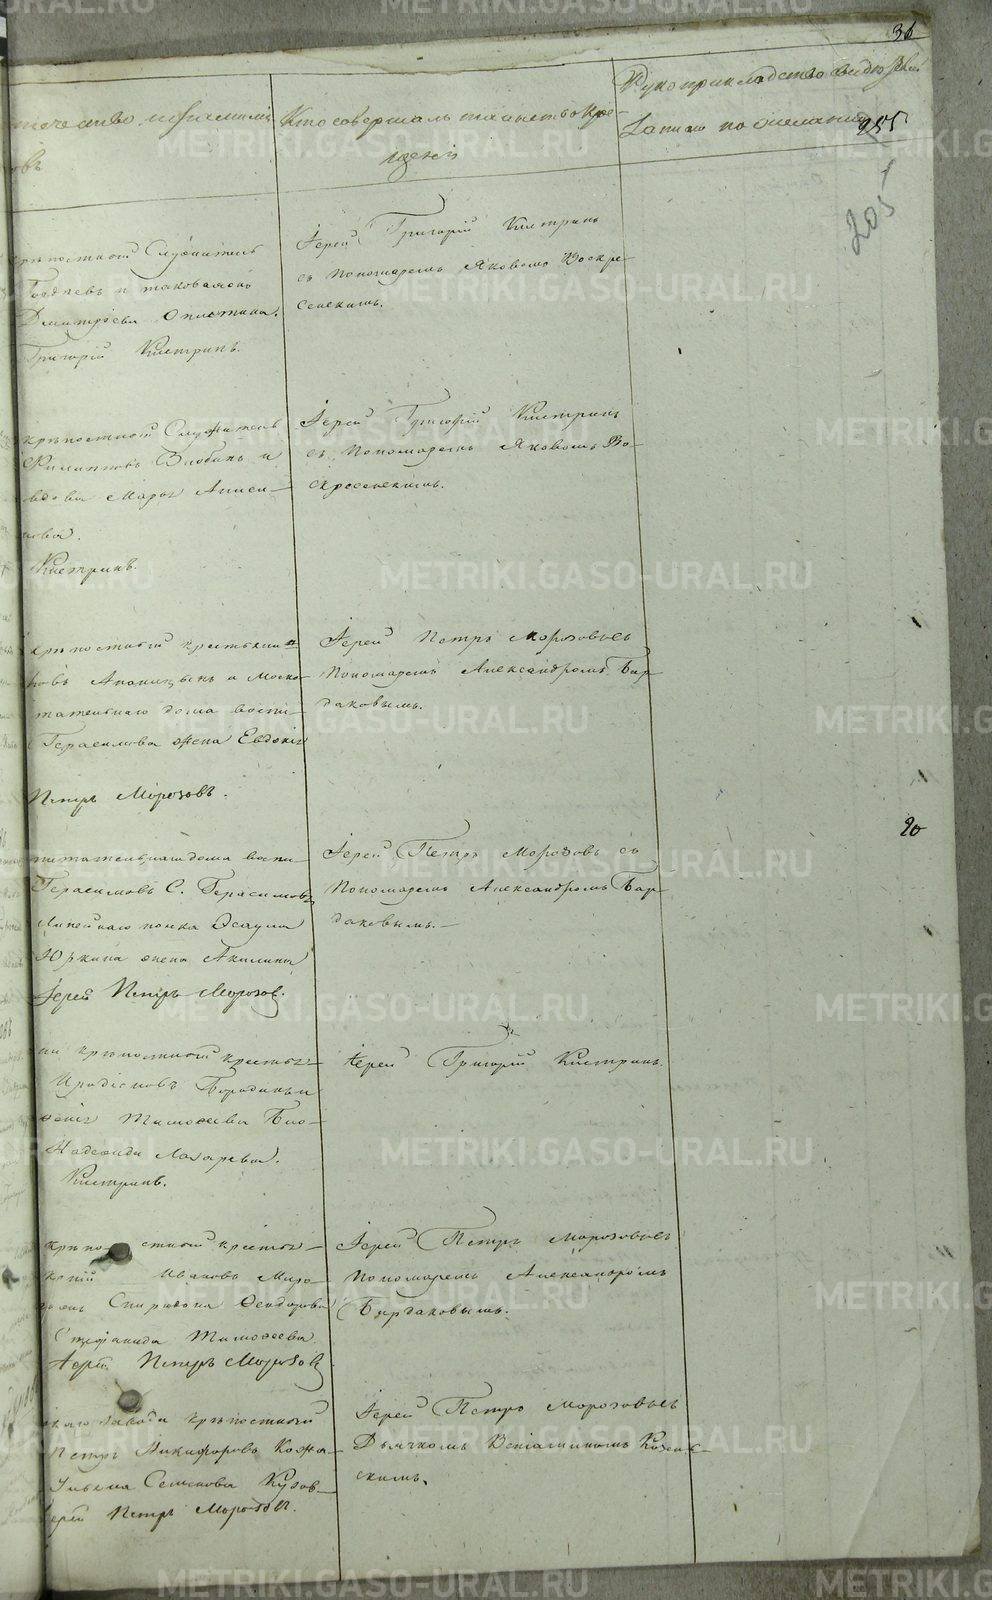 36
отчество и фамилія
овъ
Кто совершалъ таинство кре-
щенія
Рукоприкладство свидѣтелей
записи по желанію
255
205
крѣпостной Служитель
Гордѣевъ и таковаяжъ
Дмитріева
Григорій Кистринъ.
Іерей Григорій Кистринъ
съ пономаремъ Яковомъ Воскре-
сенскимъ.
крѣпостной Служитель
Филипповъ Злобинъ и
вдова Марья Аниси-
мова.
Кистринъ.
Іерей Григорій Кистринъ
съ пономаремъ Яковомъ Во-
скресенскимъ.
крѣпостной крестьянин
новъ и Моско-
тательнаго дома воспи-
Герасимова жена Евдокія
Петръ Морозовъ.
Іерей Петръ Морозовъ съ
пономаремъ Александромъ Бар-
даковымъ.
20
питательнаго дома воспи-
Герасимовъ С. Герасимовъ
Линейнаго полка Эсаула
Юркина жена Акилина
Іерей Петръ Морозов.
Іерей Петръ Морозовъ съ
пономаремъ Александромъ Бар-
даковымъ.—
крѣпостной крестья-
Иродіоновъ Бородинъ и
Тимофеева
Надежда Лазарева.
Кистринъ.
Іерей Григорій Кистринъ.
крѣпо- стной крестья-
Ивановъ Миро-
Спиридона Феодорова
Стефанида Тимофеева
Іерей Петръ Морозовъ
Іерей Петръ Морозовъ съ
пономаремъ Александромъ
Бардаковымъ.
скаго завода крѣпостной
Петръ Никифоровъ Кожа-
Ульяна Семенова Кузов-
Іерей Петръ Морозовъ.
Іерей Петръ Морозовъ съ
Дьячкомъ Веніаминомъ
скимъ.
METRIKI.GASO-URAL.RU